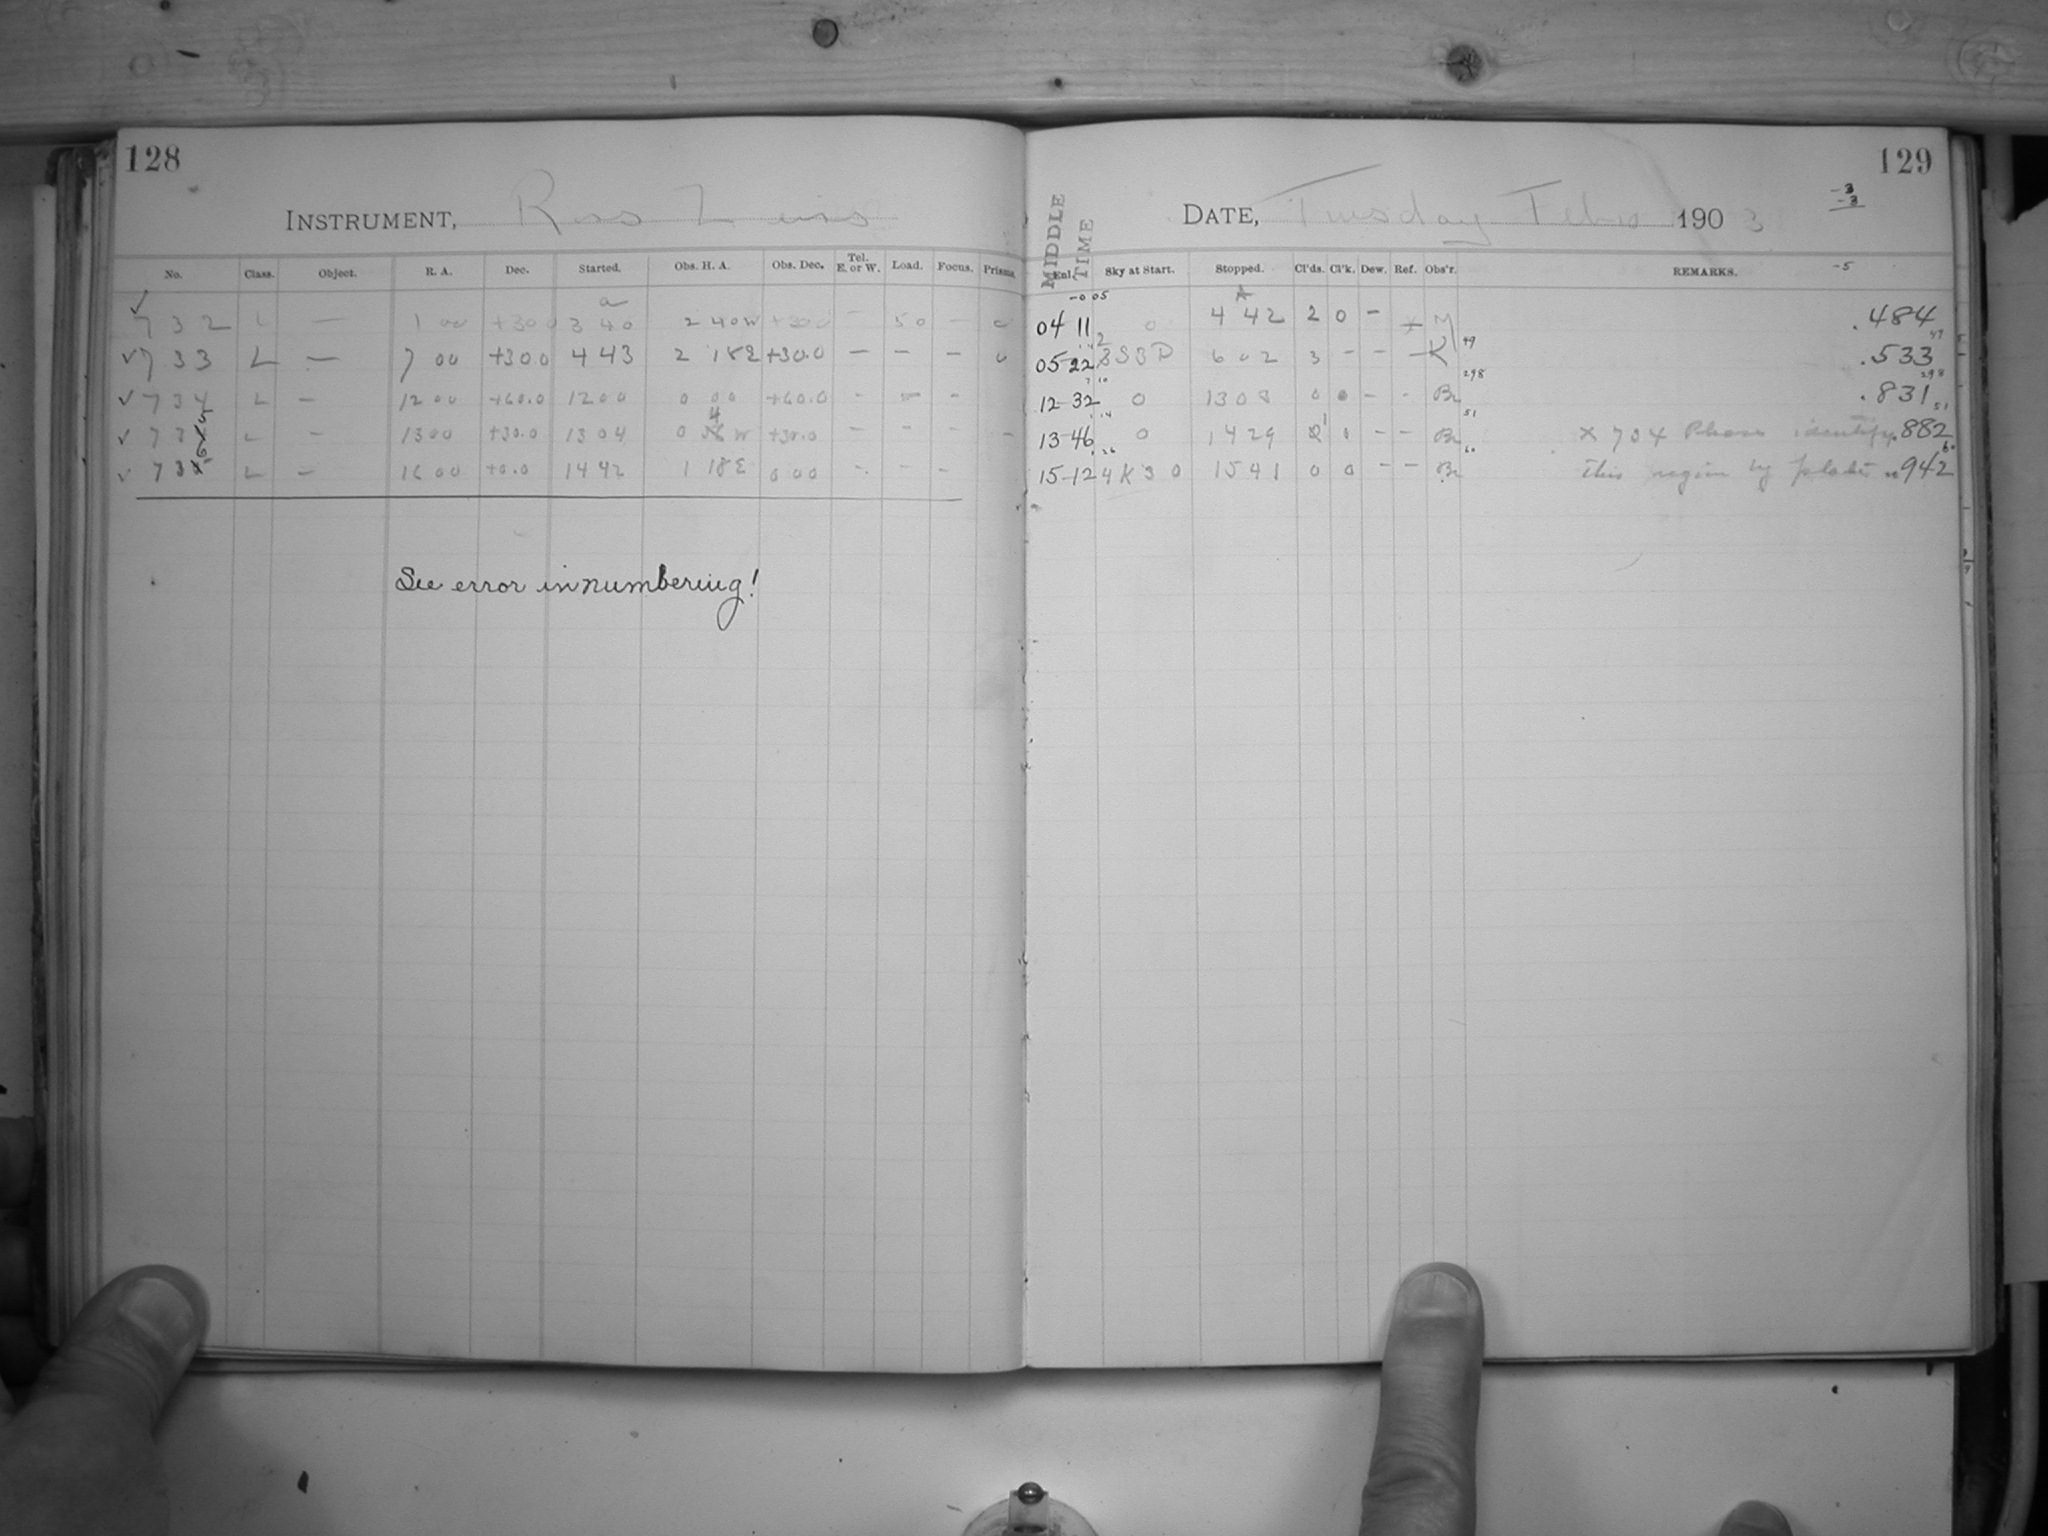 128
129
INSTRUMENT, Ross Lens
DATE, Tuesday Feb 10 1903
-3
-3
MIDDLE TIME
No. Class. Object. R. A. Dec. Started. Obs. H. A. Obs. Dec. Tel. E. or W. Load. Focus. Prisms.
Enl. Sky at Start. Stopped. Cl'ds. Cl'k. Dew. Ref. Obs'r. REMARKS. -5
✓ 732 L — 1 00 +30 0 3 40 2 40W +30 0 — 50 — 0 04 11 0 4 42 2 0 — .484
✓ 733 L — 7 00 +30 0 4 43 2 18E +30.0 — — — 0 05-22 3S3P 6 02 3 — — — K 49 .533
✓ 734 L — 12 00 +60.0 12 00 0 00 +60.0 - — - 12-32 0 1308 0 0 - - Br 298 .831
✓ L — 13 00 +30.0 13 04 0 W +30.0 - - - — 13-46 0 1429 - - Br 51 x 734 Please identify .882
✓ L — 16 00 +0.0 14 42 1 18E 0 00 - - - 15-12 4K30 1541 0 0 - - Br 60 this region by plate 942
See error in numbering!